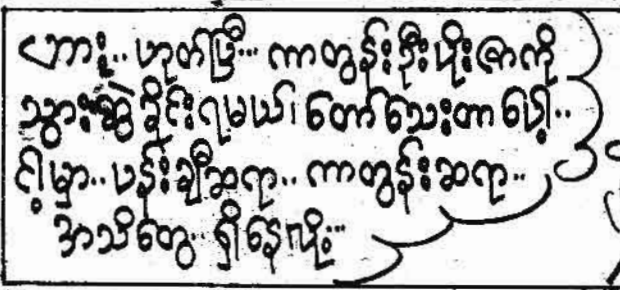 ဟား.. ဟုတ်ပြီ... ကာတွန်းဦးဖိုးဇာကို
သွားဆွဲခိုင်းရမယ်၊ တော်သေးတာပေါ့..
ငါ့မှာ.. ပန်းချီဆရာ.. ကာတွန်းဆရာ..
အသိတွေ.. ရှိနေလို့...